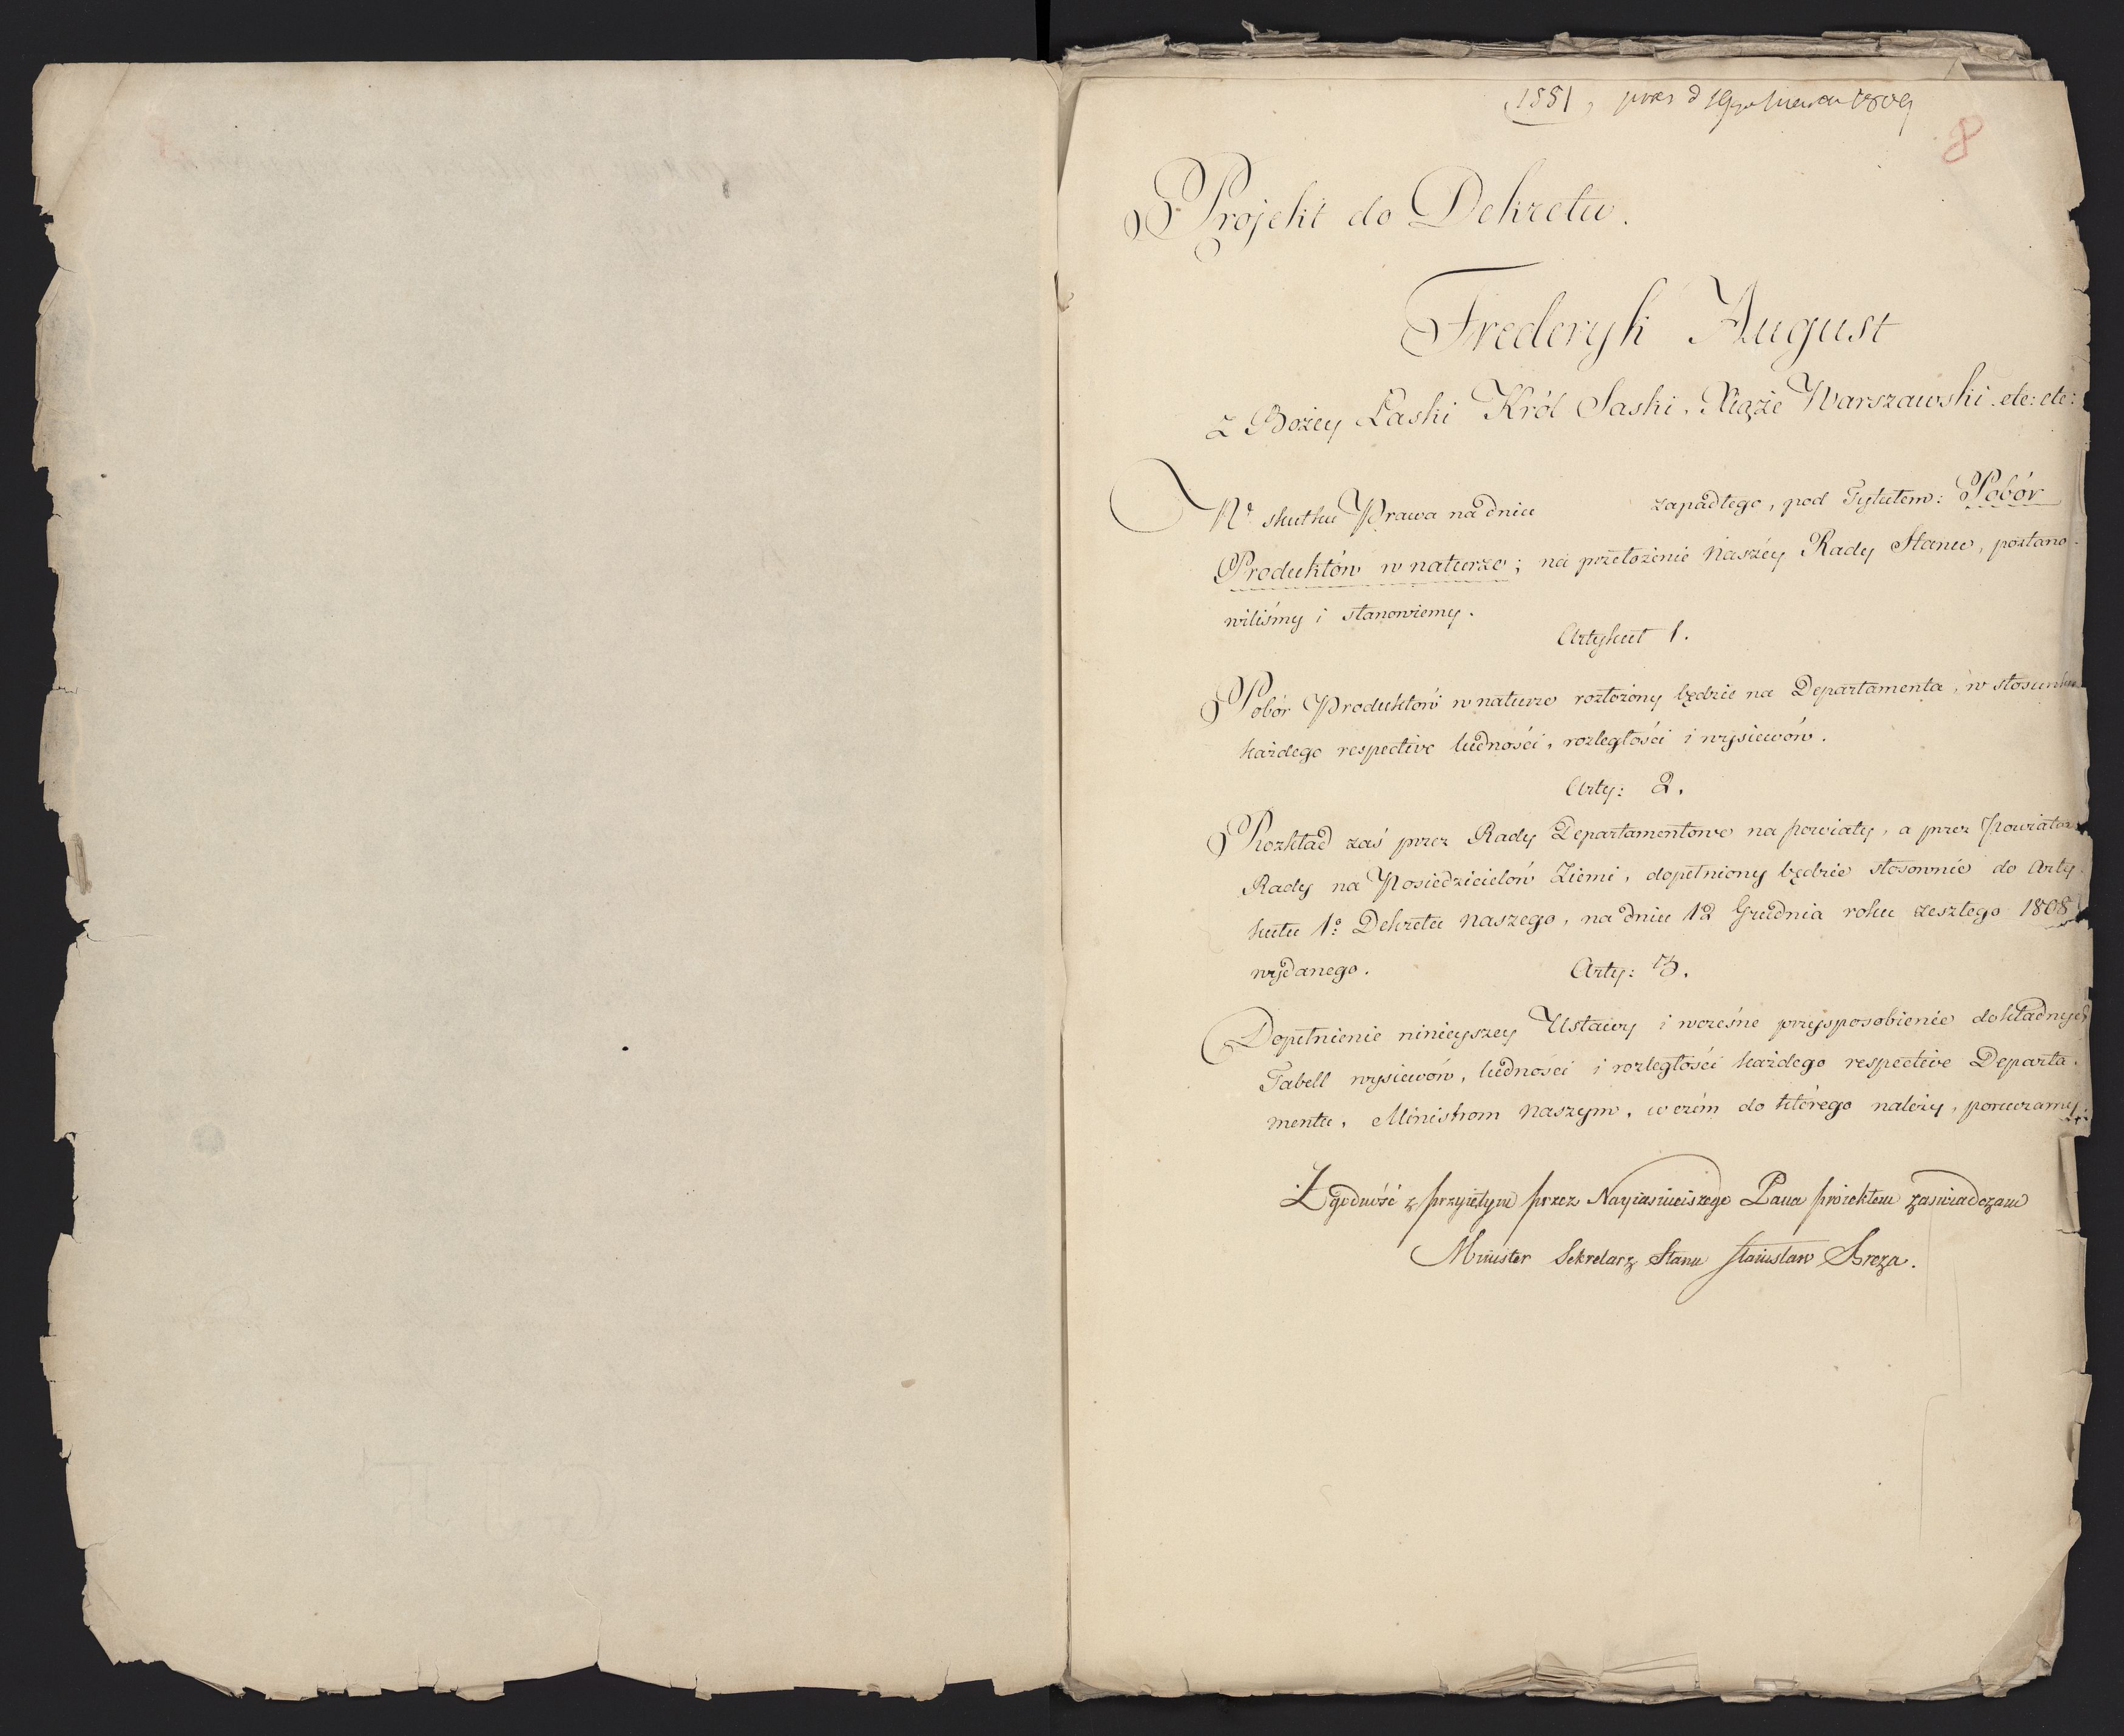 1551, pres d 19 1809
8
Projekt do Dekretu.
Frederyk August
z Bożey Łaski Król Saski, Xiąże Warszawski etc: etc:
W skutku Prawa na dniu zapadłego, pod Tytułem: Pobór
Produktów w naturze; na przełożenie Naszéy Rady Stanu, postano-
wiliśmy i stanowiemy.
Artykuł 1.
Pobór Produktów w naturze rozłożony będzie na Departamenta, w stosunku
każdego respective ludności, rozległości i wysiewów.
Arty: 2.
Rozkład zaś przez Rady Departamentowe na powiaty, a przez Powiatowe
Rady na Posiedzicielów Ziemi, dopełniony będzie stosownie do Arty-
kułu 1º Dekretu Naszego, na dniu 12 Grudnia roku zeszłego 1808
wydanego.
Arty: 3.
Dopełnienie ninieyszey Ustawy i wcześne przysposobienie dokładnych
Tabell wysiewów, ludności i rozległości każdego respective Departa-
mentu, Ministrom Naszym, w czém do którego należy, poruczamy.
Zgodność z przyiętym przez Nayiaśnieiszego Pana proiektem zaświadczam
Minister Sekretarz Stanu Stanisław Breza.